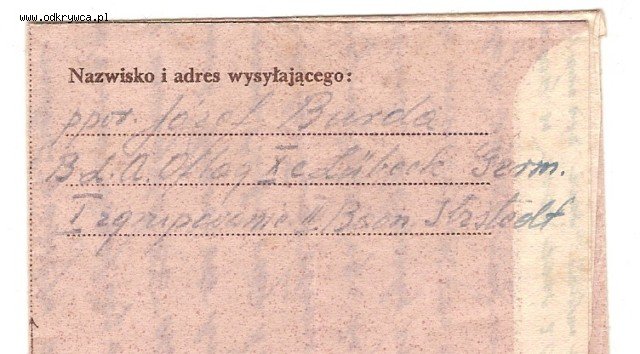 www.odkrywca.pl
Nazwisko i adres wysyłającego:
ppor. Józef Burda
B.L.A. Oflag X c Lübeck Germ.
I zgrupowanie II Baon